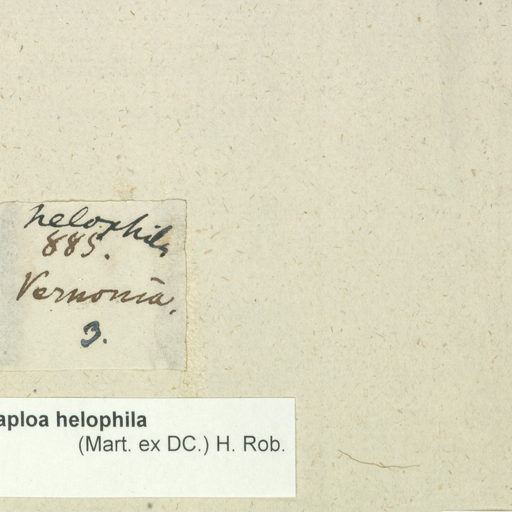 helophila
885.
Vernonia.
3.
aploa helophila
(Mart. ex DC.) H. Rob.